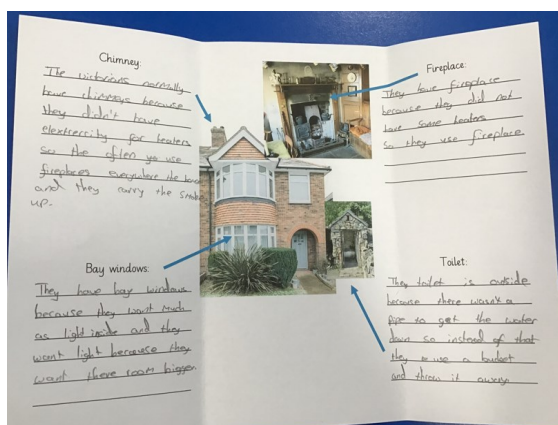 Chimney:
The victorians normally
have chimneys because
they didn't have
for heaters
so the often use
fireplaces everywhere the house
and they carry the smoke
up.
Fireplace:
They have fireplace
because they did not
have some heaters
so they use fireplace.
Bay windows:
They have bay windows
because they want much
as light inside and they
want light because they
want there room bigger
Toilet:
They toilet is outside
because there wasn't a
pipe to get the water
down so instead of that
they use a bucket
and throw it away.